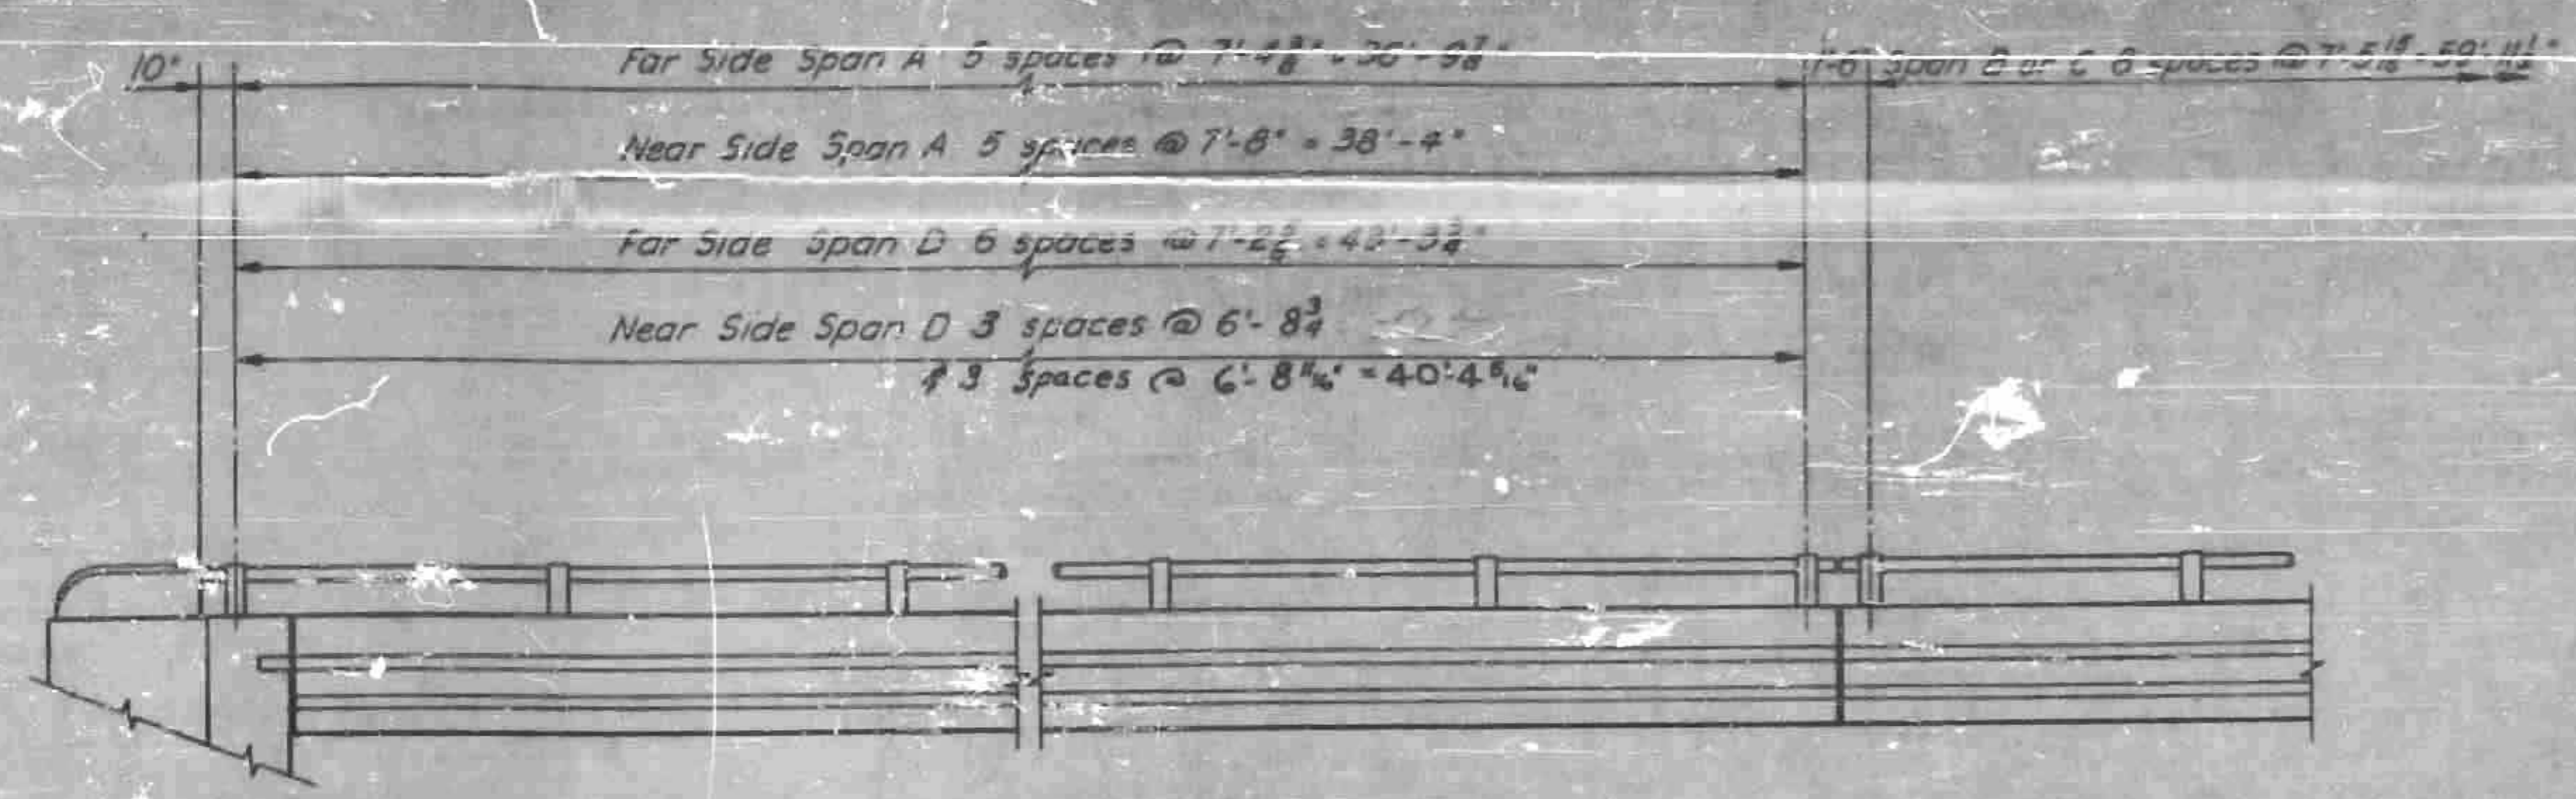 10" Far Side Span A 5 spaces @ 7'-4 3/8" = 36'-9 7/8" 1'-6" Span B or C 8 spaces @ 7'-5 15/16 = 59'-11 1/2"
Near Side Span A 5 spaces @ 7'-8" = 38'-4"
Far Side Span D 6 spaces @ 7'-2 5/8 = 43'-3 3/4"
Near Side Span D 3 spaces @ 6'-8 3/4
& 3 spaces @ 6'-8 11/16" = 40'-4 5/16"